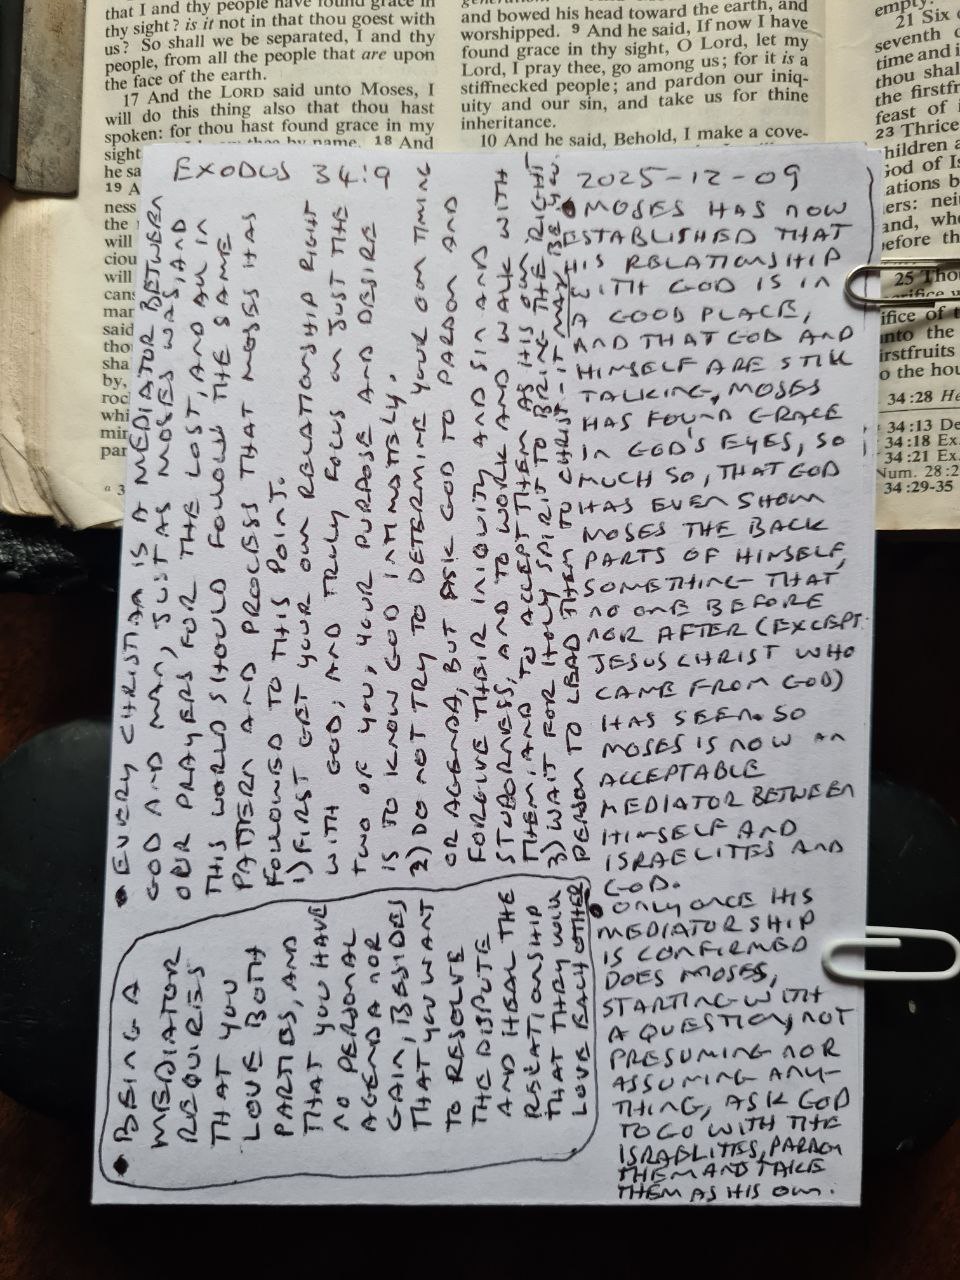 that I and thy people have found grace in
thy sight? is it not in that thou goest with
us? So shall we be separated, I and thy
people, from all the people that are upon
the face of the earth.
17 And the LORD said unto Moses, I
will do this thing also that thou hast
spoken: for thou hast found grace in my
sight
18 And
he sa
19 A
ness
the
will
ciou
will
cans
mar
said
tho
sha
by,
roc
whi
mir
par
and bowed his head toward the earth, and
worshipped. 9 And he said, If now I have
found grace in thy sight, O Lord, let my
Lord, I pray thee, go among us; for it is a
stiffnecked people; and pardon our iniq-
uity and our sin, and take us for thine
inheritance.
10 And he said, Behold, I make a cove-
empty.
21 Six
seventh
time and i
thou shal
the firstfr
feast of
23 Thrice
hildren a
God of Is
ations b
ers: nei
and, wh
efore th
25 Thou
ifice of t
into the
irstfruits
o the hou
34:28 He
34:13 De
34:18 Ex.
34:21 Ex.
Num. 28:2
34:29-35
EXODUS 34:9
2025-12-09
• MOSES HAS NOW
ESTABLISHED THAT
HIS RELATIONSHIP
WITH GOD IS IN
A GOOD PLACE,
AND THAT GOD AND
HIMSELF ARE STILL
TALKING, MOSES
HAS FOUND GRACE
IN GOD'S EYES, SO
MUCH SO, THAT GOD
HAS EVEN SHOWN
MOSES THE BACK
PARTS OF HIMSELF,
SOMETHING THAT
NO ONE BEFORE
NOR AFTER (EXCEPT
JESUS CHRIST WHO
CAME FROM GOD)
HAS SEEN. SO
MOSES IS NOW AN
ACCEPTABLE
MEDIATOR BETWEEN
HIMSELF AND
ISRAELITES AND
GOD.
• ONLY ONCE HIS
MEDIATORSHIP
IS CONFIRMED
DOES MOSES,
STARTING WITH
A QUESTION, NOT
PRESUMING NOR
ASSUMING ANY-
THING, ASK GOD
TO GO WITH THE
ISRAELITES, PARDON
THEM AND TAKE
THEM AS HIS OWN.
• EVERY CHRISTIAN IS A MEDIATOR BETWEEN
GOD AND MAN, JUST AS MOSES WAS, AND
OUR PRAYERS FOR THE LOST, AND ALL IN
THIS WORLD SHOULD FOLLOW THE SAME
PATTERN AND PROCESS THAT MOSES HAS
FOLLOWED TO THIS POINT.
1) FIRST GET YOUR OWN RELATIONSHIP RIGHT
WITH GOD; AND TRULY FOCUS ON JUST THE
TWO OF YOU, YOUR PURPOSE AND DESIRE
IS TO KNOW GOD INTIMATELY.
2) DO NOT TRY TO DETERMINE YOUR OWN TIMING
OR AGENDA, BUT ASK GOD TO PARDON AND
FORGIVE THEIR INIQUITY AND SIN AND
STUBORNESS, AND TO WORK AND WALK WITH
THEM; AND TO ACCEPT THEM AS HIS OWN.
3) WAIT FOR HOLY SPIRIT TO BRING THE RIGHT
PERSON TO LEAD THEM TO CHRIST - IT MAY BE YOU.
• BEING A
MEDIATOR
REQUIRIES
THAT YOU
LOVE BOTH
PARTIES, AND
THAT YOU HAVE
NO PERSONAL
AGENDA NOR
GAIN, BESIDES
THAT YOU WANT
TO RESOLVE
THE DISPUTE
AND HEAL THE
RELATIONSHIP
THAT THEY WILL
LOVE EACH OTHER